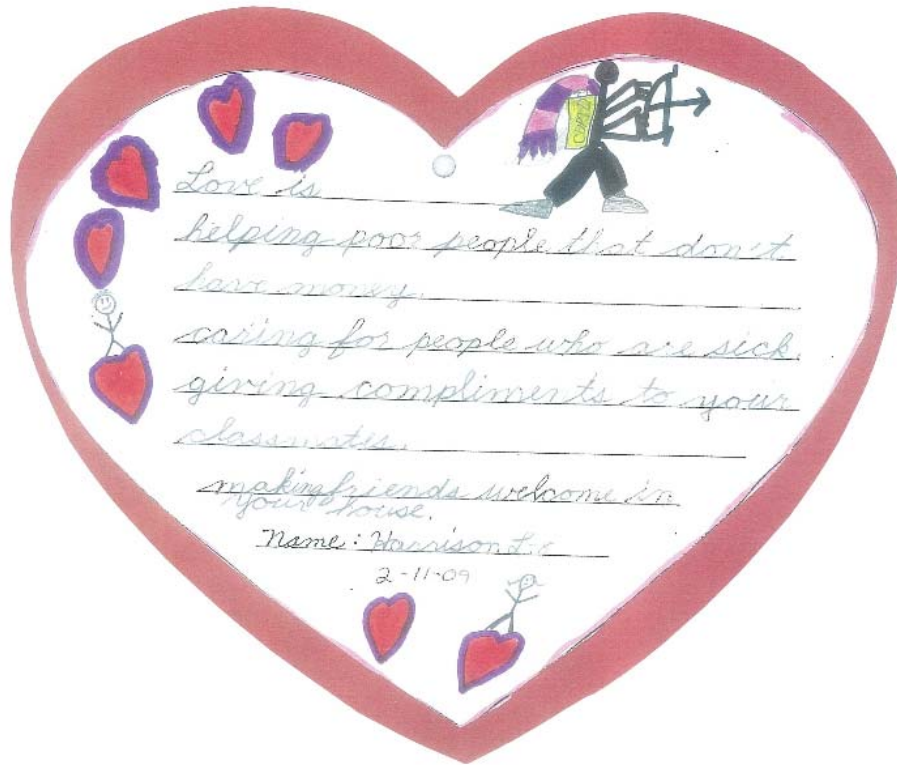 Love is
helping poor people that don't
have money.
caring for people who are sick.
giving compliments to your
classmates.
making friends welcome in
your house.
Name: Harrison
2-11-09